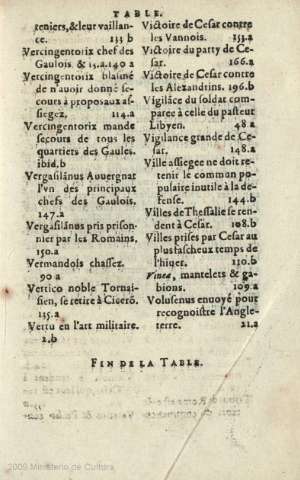 TABLE.
teniers, & leur vaillan-
ce. 133 b
Vercingentorix chef des
Gaulois. & 15.a.140 a
Vercingentorix blasmé
de n'auoir donné se-
cours à proposaux as-
siegez, 114.a
Vercingentorix mande
secours de tous les
quartiers des Gaules.
ibid.b
Vergasilānus Auuergnat
l'vn des principaux
chefs des Gaulois.
147.a
Vergasilānus pris prison-
nier par les Romains.
150.a
Vermandois chassez.
90 a
Vertico noble Tornai-
sien, se retire à Ciceró.
135.a
Vertu en l'art militaire.
2.b
Victoire de Cesar contre
les Vannois. 153.a
Victoire du party de Ce-
sar. 166.a
Victoire de Cesar contre
les Alexandrins. 196.b
Vigilāce du soldat com-
paree à celle du pasteur
Libyen. 48 a
Vigilance grande de Ce-
sar. 148.a
Ville assiegee ne doit re-
tenir le commun po-
pulaire inutile à la de-
fense. 144.b
Villes de Thessalie se ren-
dent à Cesar. 108.b
Villes prises par Cesar au
plustascheux temps de
l'hiuer. 130.b
Vinea, mantelets & ga-
bions. 109.a
Volusenus enuoyé pour
recognoistre l'Angle-
terre. 21.a
FIN DE LA TABLE.
2009 Ministerio de Cultura